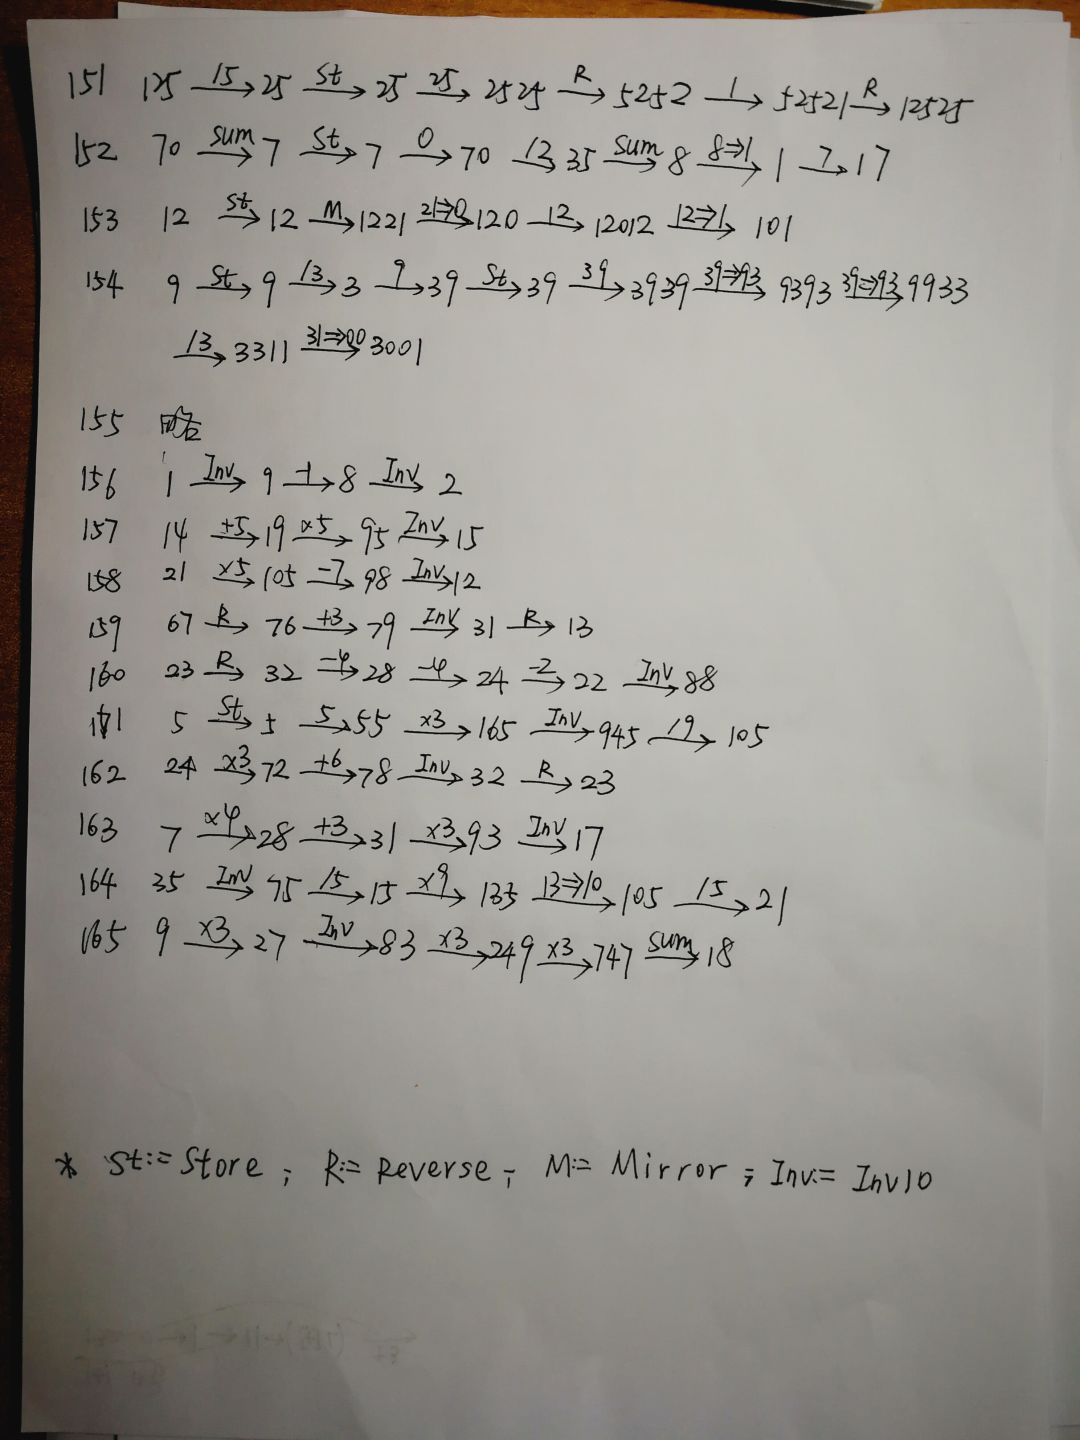 151 125 —/5→ 25 —St→ 25 —25→ 2525 —R→ 5252 —1→ 52521 —R→ 12525
152 70 —sum→ 7 —St→ 7 —0→ 70 —/2→ 35 —sum→ 8 —8⇒1→ 1 —7→ 17
153 12 —St→ 12 —M→ 1221 —21⇒0→ 120 —12→ 12012 —12⇒1→ 101
154 9 —St→ 9 —/3→ 3 —9→ 39 —St→ 39 —39→ 3939 —39⇒93→ 9393 —39⇒93→ 9933
—/3→ 3311 —31⇒00→ 3001
155 略
156 1 —Inv→ 9 —-1→ 8 —Inv→ 2
157 14 —+5→ 19 —×5→ 95 —Inv→ 15
158 21 —×5→ 105 —-7→ 98 —Inv→ 12
159 67 —R→ 76 —+3→ 79 —Inv→ 31 —R→ 13
160 23 —R→ 32 —-4→ 28 —-4→ 24 —-2→ 22 —Inv→ 88
161 5 —St→ 5 —5→ 55 —×3→ 165 —Inv→ 945 —/9→ 105
162 24 —×3→ 72 —+6→ 78 —Inv→ 32 —R→ 23
163 7 —×4→ 28 —+3→ 31 —×3→ 93 —Inv→ 17
164 35 —Inv→ 75 —/5→ 15 —×9→ 135 —13⇒10→ 105 —/5→ 21
165 9 —×3→ 27 —Inv→ 83 —×3→ 249 —×3→ 747 —sum→ 18
* St:= Store; R:= Reverse; M:= Mirror; Inv:= Inv10